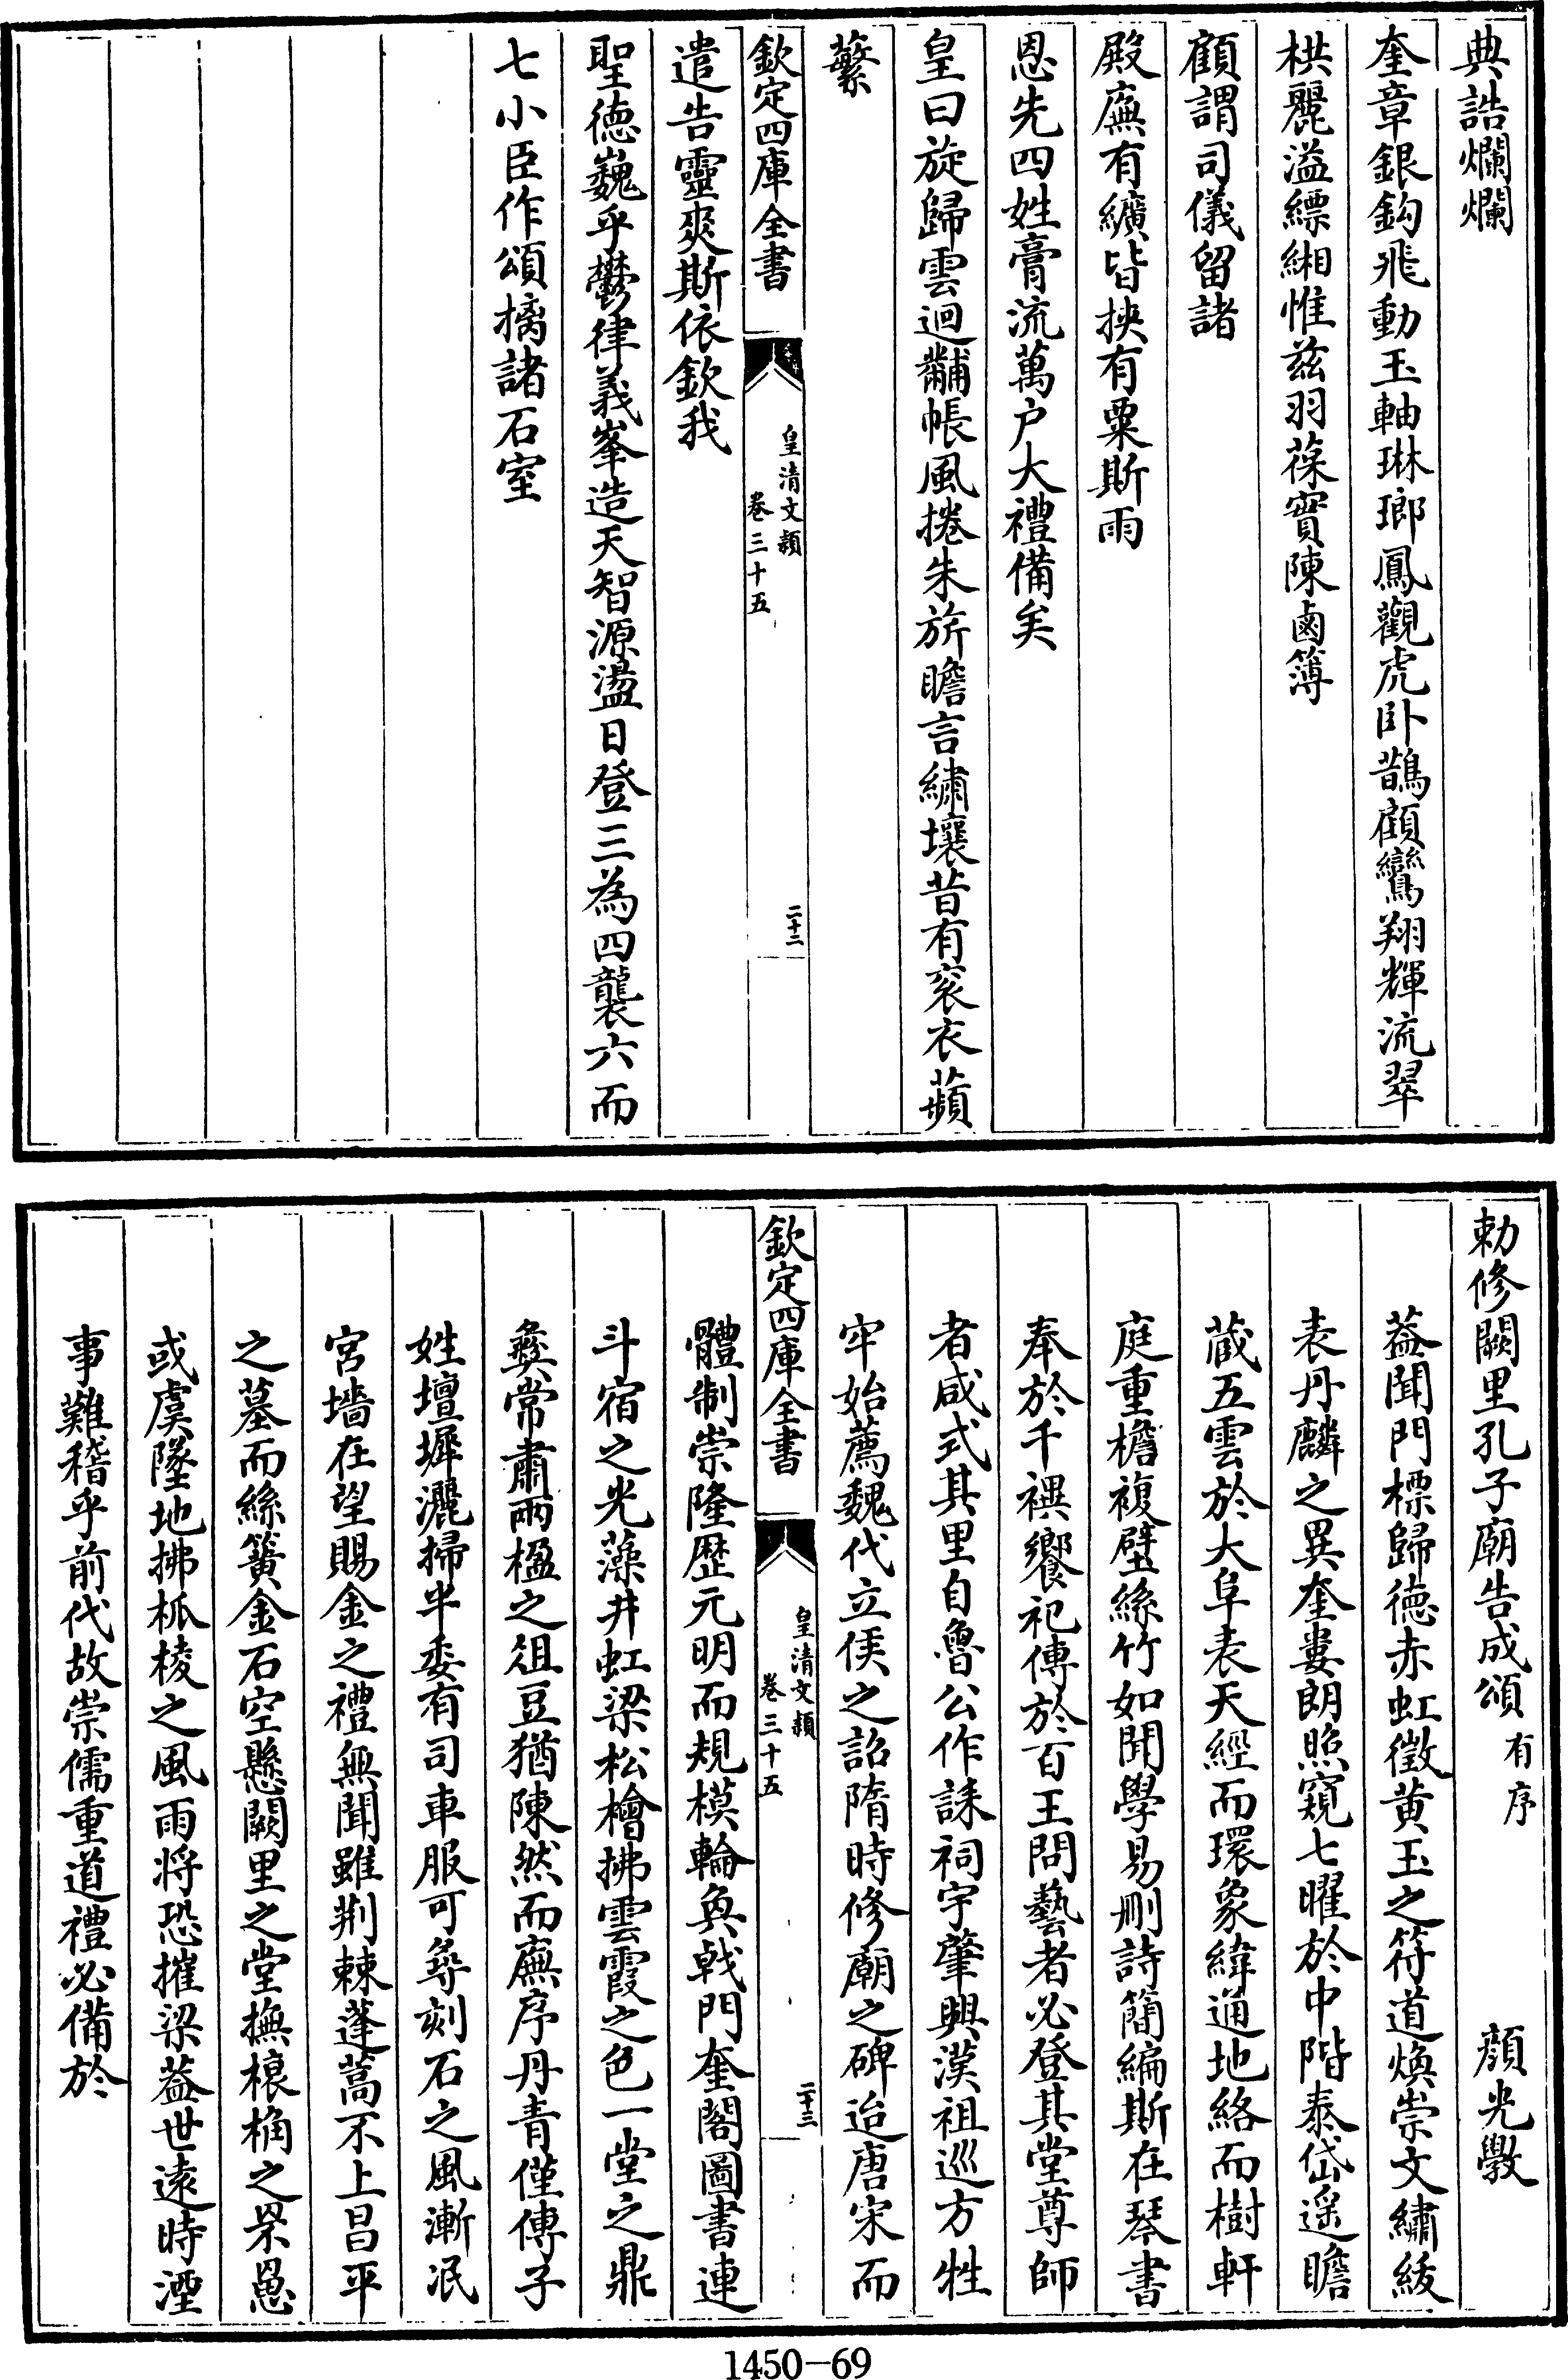 典誥爛爛
奎章銀鈎飛動玉軸琳瑯鳳觀虎卧鵲顧鸞翔輝流翠
栱麗溢縹緗惟兹羽葆實陳鹵簿
顧謂司儀留諸
殿廡有纊皆挾有粟斯雨
恩先四姓膏流萬户大禮備矣
皇曰旋歸雲迴黼帳風捲朱旂瞻言繡壤昔有衮衣蘋
蘩
欽定四庫全書
皇清文穎
卷三十五
二十二
遣告靈爽斯依欽我
聖徳巍乎鬱律義峯造天智源盪日登三為四襲六而
七小臣作頌摛諸石室
勅修闕里孔子廟告成頌有序 顔光斆
葢聞門標歸徳赤虹徵黄玉之符道煥崇文繡紱
表丹麟之異奎婁朗照窺七曜於中階泰岱遥瞻
蔵五雲於大阜表天經而環象緯通地絡而樹軒
庭重檐複壁絲竹如聞學易刪詩簡編斯在琴書
奉於千禩饗祀傳於百王問藝者必登其堂尊師
者咸式其里自魯公作誄祠宇肇興漢祖巡方牲
牢始薦魏代立侯之詔隋時修廟之碑迨唐宋而
欽定四庫全書
皇清文穎
卷三十五
二十三
體制崇隆歴元明而規模輪奐戟門奎閣圖書連
斗宿之光藻井虹梁松檜拂雲霞之色一堂之鼎
彜常肅兩楹之俎豆猶陳然而廡序丹青僅傳子
姓壇墀灑掃半委有司車服可尋刻石之風漸泯
宮墻在望賜金之禮無聞雖荆棘蓬蒿不上昌平
之墓而絲簧金石空懸闕里之堂撫榱桷之罘罳
或虞墜地拂柧棱之風雨将恐摧梁葢世逺時湮
事難稽乎前代故崇儒重道禮必備於
1450-69